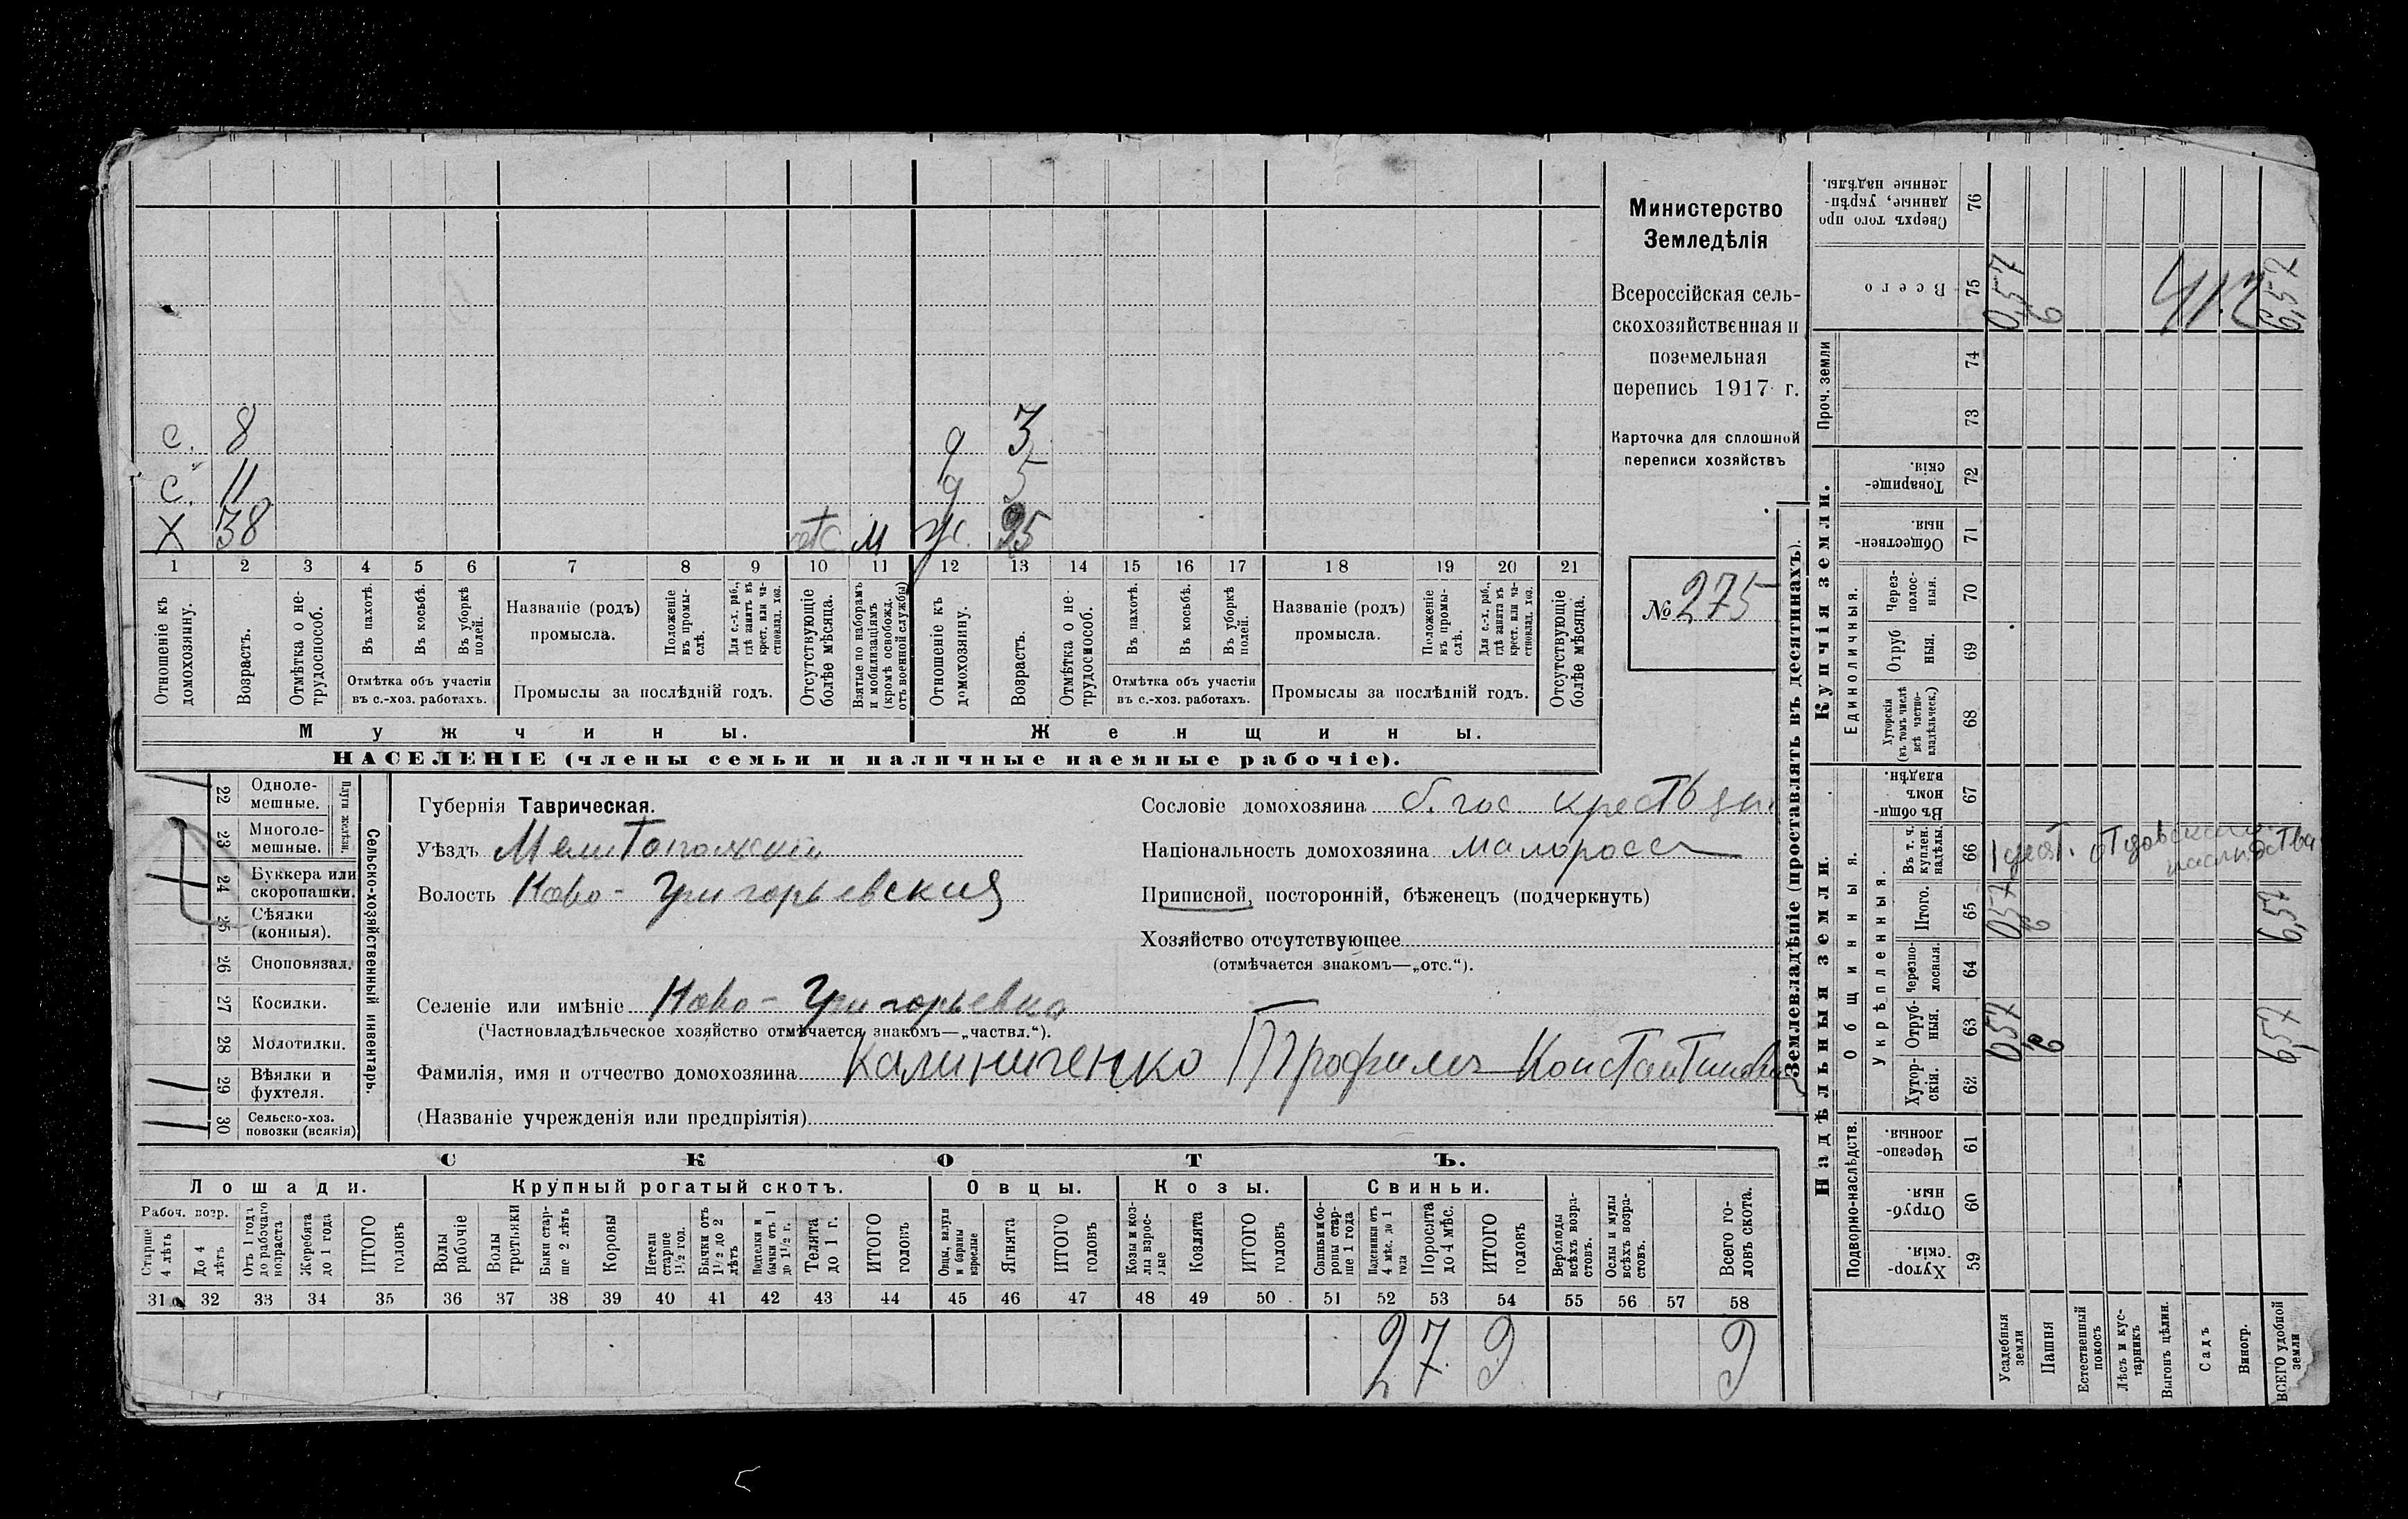 Министерство
Земледѣлія
Всероссійская сель-
скохозяйственная и
поземельная
перепись 1917 г.
Карточка для сплошной
переписи хозяйствъ
№ 275
с. 8 д 3
с. 11 д 5
Х 38 отс. м ж. 35
1 2 3 4 5 6 7 8 9 10 11 12 13 14 15 16 17 18 19 20 21
Отношеніе къ домохозяину.
Возрастъ.
Отмѣтка о не-трудоспособ.
Въ пахотѣ.
Въ косьбѣ.
Въ уборкѣ полей.
Отмѣтка объ участіи
въ с.-хоз. работахъ.
Названіе (родъ)
промысла.
Положеніе въ промы-слѣ.
Для с.-х. раб., гдѣ занятъ въ крест. или ча-стновлад. хоз.
Промыслы за послѣдній годъ.
Отсутствующіе болѣе мѣсяца.
Взятые по наборамъ и мобилизаціямъ (кромѣ освобожд. отъ военной службы)
Отношеніе къ домохозяину.
Возрастъ.
Отмѣтка о не-трудоспособ.
Въ пахотѣ.
Въ косьбѣ.
Въ уборкѣ полей.
Отмѣтка объ участіи
въ с.-хоз. работахъ.
Названіе (родъ)
промысла.
Положеніе въ промы-слѣ.
Для с.-х. раб., гдѣ занята въ крест. или ча-стновлад. хоз.
Промыслы за послѣдній годъ.
Отсутствующіе болѣе мѣсяца.
Мужчины. Женщины.
НАСЕЛЕНІЕ (члены семьи и наличные наемные рабочіе).
Сельско-хозяйственный инвентарь.
Плуги желѣзн.
22 Одноле-мешные.
23 Многоле-мешные.
24 Буккера или скоропашки.
25 Сѣялки (конныя).
26 Сноповязал.
27 Косилки.
28 Молотилки.
29 Вѣялки и фухтеля.
30 Сельско-хоз. повозки (всякія)
Губернія Таврическая.
Уѣздъ Мелитопольскій
Волость Ново-Григорьевская
Селеніе или имѣніе Ново-Григорьевка
(Частновладѣльческое хозяйство отмѣчается знакомъ—„частвл.“).
Фамилія, имя и отчество домохозяина Калиниченко Трофимъ Константиновъ
(Названіе учрежденія или предпріятія)
Сословіе домохозяина б. гос. крестьян.
Національность домохозяина малоросс
Приписной, посторонній, бѣженецъ (подчеркнуть)
Хозяйство отсутствующее
(отмѣчается знакомъ—„отс.“).
СКОТЪ.
Лошади. Крупный рогатый скотъ. Овцы. Козы. Свиньи.
Рабоч. возр.
Старше 4 лѣтъ
До 4 лѣтъ
Отъ 1 года до рабочаго возраста
Жеребята до 1 года
ИТОГО головъ
Волы рабочіе
Волы третьяки
Быки стар-ше 2 лѣтъ
Коровы
Нетели старше 1½ год.
Бычки отъ 1½ до 2 лѣтъ
Подтелки и бычки отъ 1 до 1½ г.
Телята до 1 г.
ИТОГО головъ
Овцы, валухи и бараны взрослые
Ягнята
ИТОГО головъ
Козы и коз-лы взрос-лые
Козлята
ИТОГО головъ
Свиньи и бо-ровы стар-ше 1 года
Подсвинки отъ 4 мѣс. до 1 года
Поросята до 4 мѣс.
ИТОГО головъ
Верблюды всѣхъ возра-стовъ.
Ослы и мулы всѣхъ возра-стовъ.
Всего го-ловъ скота.
31 32 33 34 35 36 37 38 39 40 41 42 43 44 45 46 47 48 49 50 51 52 53 54 55 56 57 58
2 7 9 9
Землевладѣніе (проставлять въ десятинахъ).
Надѣльныя земли. Купчія земли. Проч. земли
Подворно-наслѣдств.
Общинныя.
Укрѣпленныя.
Единоличныя.
Хутор-скія. 59
Отруб-ныя. 60
Черезпо-лосныя. 61
Хутор-скія. 62
Отруб-ныя. 63
Черезпо-лосныя. 64
Итого. 65
Въ т. ч. куплен. надѣлы. 66
Въ общи-номъ владѣн. 67
Хуторскія (въ томъ числѣ всѣ частно-владѣльческ.) 68
Отруб-ныя. 69
Через-полос-ныя. 70
Обществен-ныя. 71
Товарище-скія. 72
73
74
Всего 75
Сверхъ того про-данные, укрѣп-ленные надѣлы. 76
Усадебныя земли 0,57 0,57 0,57
Пашня 6 6 6
Естественный покосъ
Лѣсъ и кус-тарникъ
Выгонъ цѣлин.
Садъ
Виногр.
ВСЕГО удобной земли 6,57 6,57 6,57
1 десят. отцовскаго наслѣдства